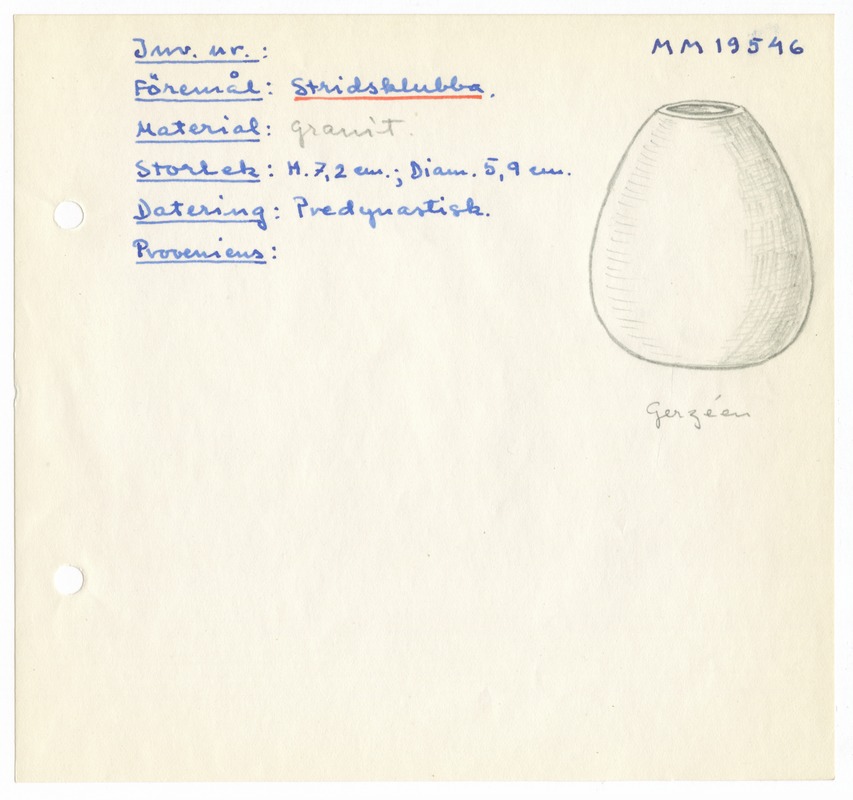 Inv. nr.:
MM 19546
Föremål: Stridsklubba.
Material: granit.
Storlek: H. 7,2 cm.; Diam. 5,9 cm.
Datering: Predynastisk.
Proveniens:
Gerzéen